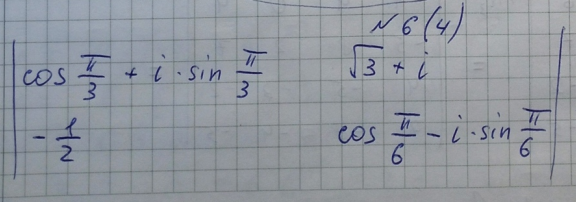 №6(4)
cos π/3 + i · sin π/3 √3 + i
- 1/2 cos π/6 - i · sin π/6